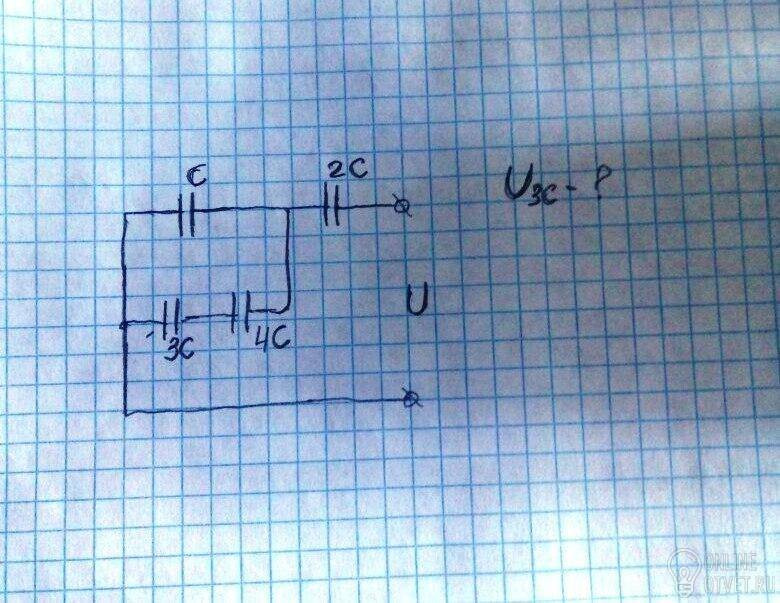 C
2C
U₃C - ?
3C
4C
U
ONLINE
OTVET.RU